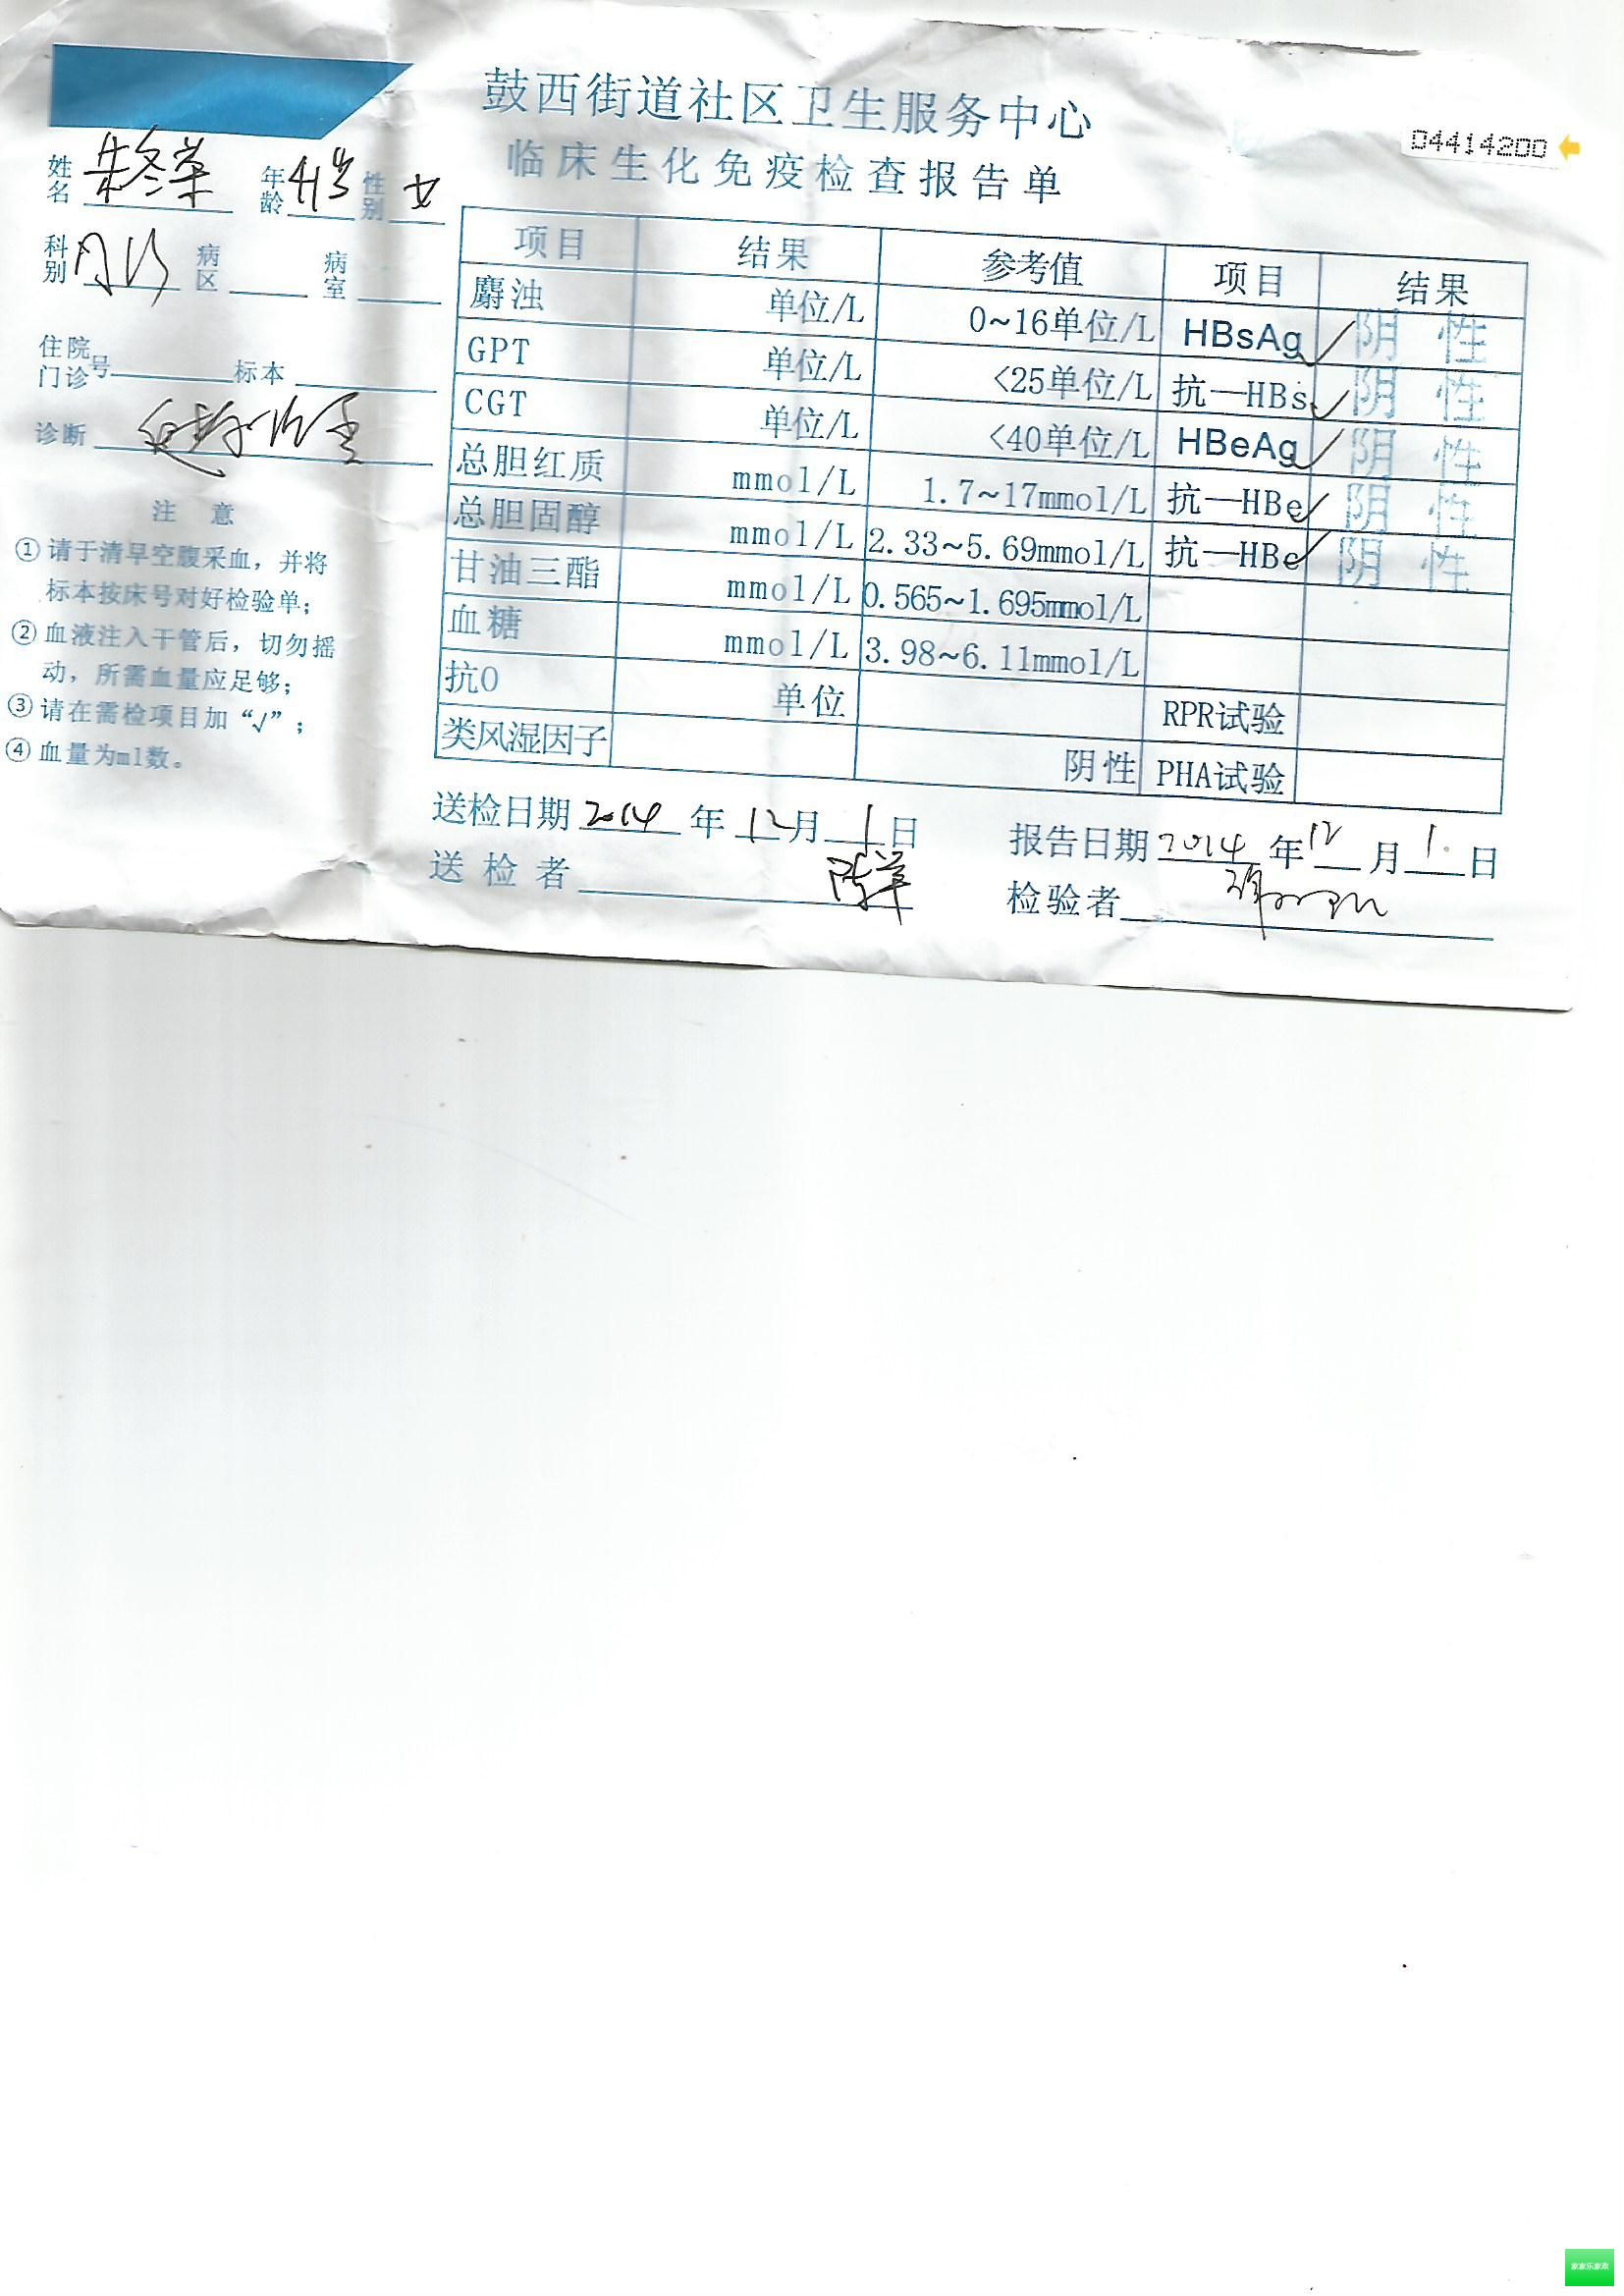 鼓西街道社区卫生服务中心
临床生化免疫检查报告单
04414200
姓名 朱冬萍 年龄 41岁 性别 女
科别 病区 病室
住院门诊号 标本
诊断
注 意
①请于清早空腹采血，并将
标本按床号对好检验单；
②血液注入干管后，切勿摇
动，所需血量应足够；
③请在需检项目加“√”；
④血量为ml数。
项目 结果 参考值 项目 结果
麝浊 单位/L 0~16单位/L HBsAg √ 阴 性
GPT 单位/L <25单位/L 抗—HBs √ 阴 性
CGT 单位/L <40单位/L HBeAg √ 阴 性
总胆红质 mmol/L 1.7~17mmol/L 抗—HBe √ 阴 性
总胆固醇 mmol/L 2.33~5.69mmol/L 抗—HBc √ 阴 性
甘油三酯 mmol/L 0.565~1.695mmol/L
血糖 mmol/L 3.98~6.11mmol/L
抗O 单位 RPR试验
类风湿因子 阴性 PHA试验
送检日期 2014 年 12 月 1 日 报告日期 2014 年 12 月 1 日
送检者 检验者
家家乐家政